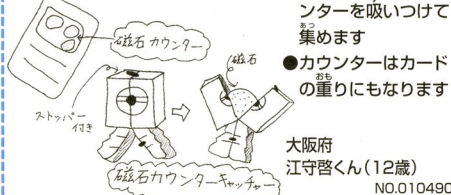 磁石カウンター
磁石
ストッパー
付き
磁石カウンターキャッチャー
ンターを吸いつけて
集めます
●カウンターはカード
の重りにもなります
大阪府
江守啓くん(12歳)
NO.010490